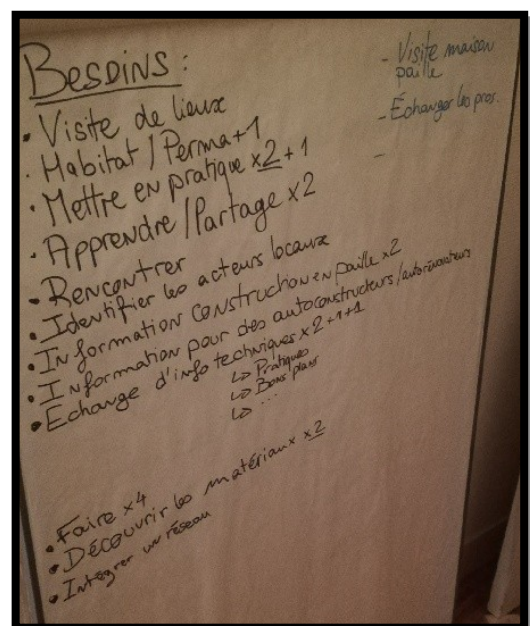 BESOINS :
• Visite de lieux
• Habitat / Perma +1
• Mettre en pratique x2 + 1
• Apprendre / Partage x2
• Rencontrer
• Identifier les acteurs locaux
• Information construction en paille x2
• Information pour des autoconstructeurs / autorénovateurs
• Echange d'info techniques x2 +1+1
↳ Pratiques
↳ Bons plans
↳ ...
• Faire x4
• Découvrir les matériaux x2
• Intégrer un réseau
- Visite maison
paille
- Échanger les pros.
-